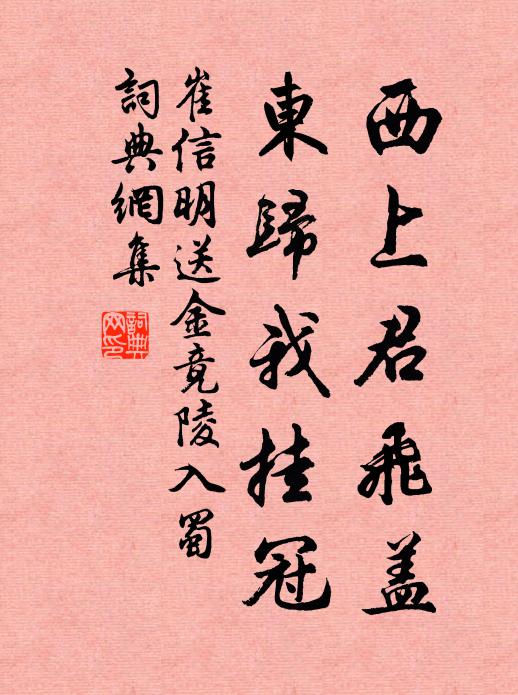 西上君飛盖
東歸我挂冠
崔信明送金竟陵入蜀
詞典網集
詞典网印